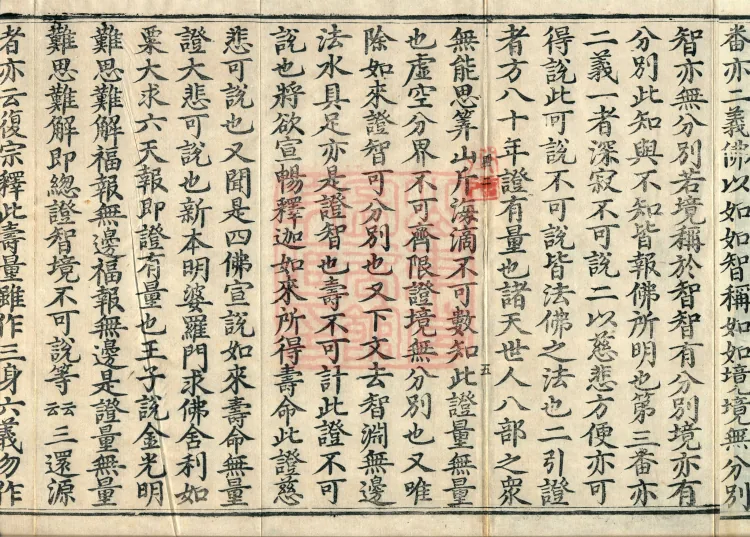 番亦二義佛以如如智稱如如境境無分別
智亦無分別若境稱於智智有分別境亦有
分別此知與不知皆報佛所明也第三番亦
二義一者深寂不可說二以慈悲方便亦可
得說此可說不可說皆法佛之法也二引證
者方八十年證有量也諸天世人八部之眾
五
無能思筭山斤海滴不可數知此證量無量
也虛空分界不可齊限證境無分別也又唯
除如來證智可分別也又下文去智淵無邊
法水具足亦是證智也壽不可計此證不可
說也將欲宣暢釋迦如來所得壽命此證慈
悲可說也又聞是四佛宣說如來壽命無量
證大悲可說也新本明婆羅門求佛舍利如
栗大求六天報即證有量也王子說金光明
難思難解福報無邊福報無邊是證量無量
難思難解即總證智境不可說等云云三還源
者亦云復宗釋此壽量雖作三身六義勿作